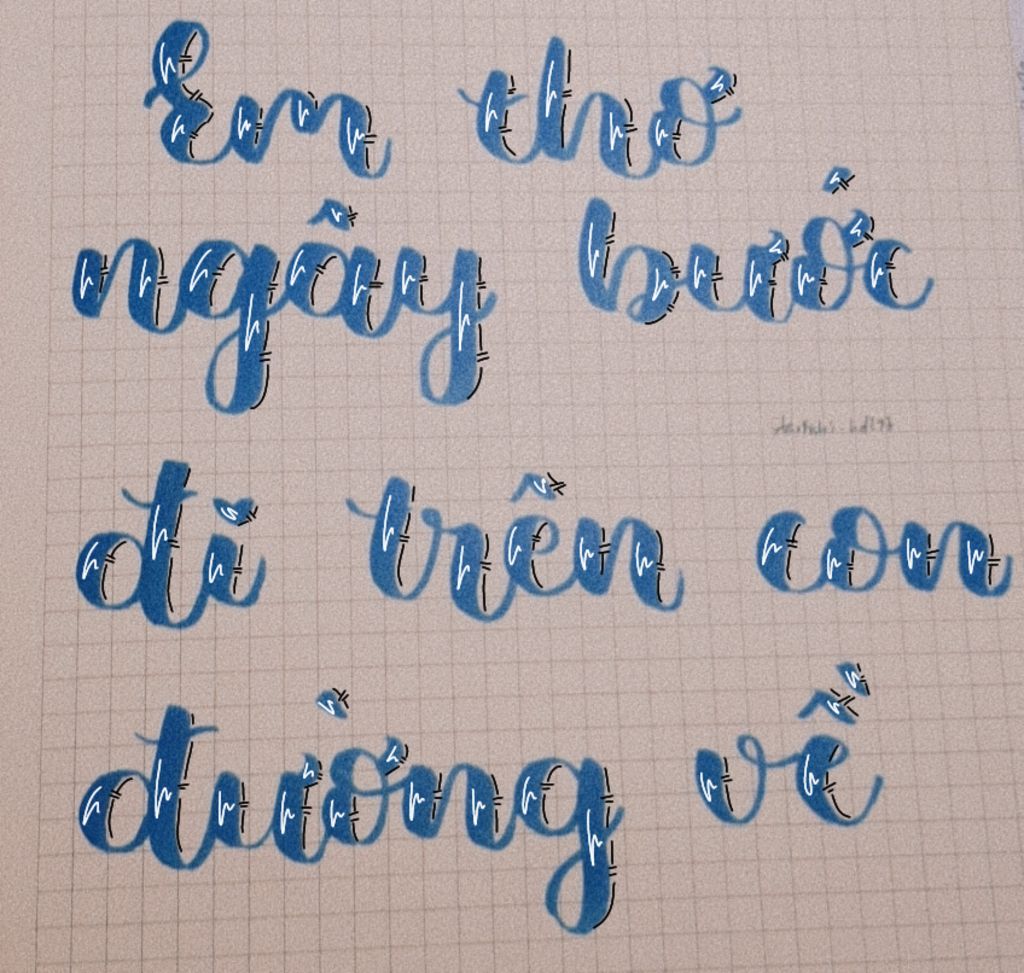 Em thơ
ngây bước
đi trên con
đường về